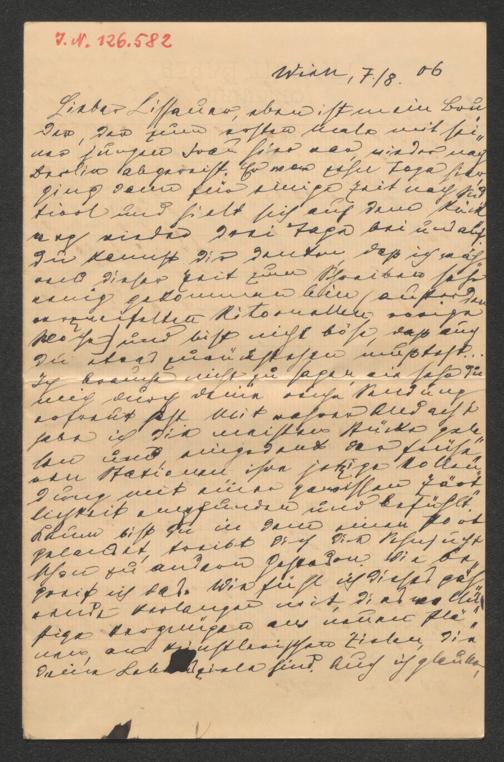 J. N. 126.582
Wien, 7/8. 06
Lieber Lissauer, eben ist mein Bru-
der, der zum ersten male mit sei-
ner jungen Frau hier war wieder nach
Berlin abgereist. Er war zehn Tage hier
ging dann für einige Zeit nach Süd
tirol und hielt sich auf dem Rück
weg wieder drei Tage bei uns auf.
Du kannst dir denken, daß ich wäh
rend dieser Zeit zum Schreiben sehr
wenig gekommen bin (außer den
Ritornellen voriger
Woche) und bist nicht böse, daß auch
du etwas zurückstehen mußtest...
Ich brauche nicht zu sagen, wie sehr du
mich durch deine Sendung
erfreut hast. Mit wahrer Andacht
habe ich die meisten Stücke gele
sen und eingedenk der frühe-
ren Stationen ihre jetzige Vollen
dung mit einer gewissen Zärt
lichkeit empfunden und befühlt.
Kaum bist du in dem einen Port
gelandet, treibt dich die Sehnsucht
schon zu andern Gestaden. Wie be
greif ich das. Wie fühl ich dieses
Verlangen mit, dieses
Vergnügen an neuen Plä
nen, an künstlerischen Zielen, die
deine Lebensziele sind. Auch ich glaube,